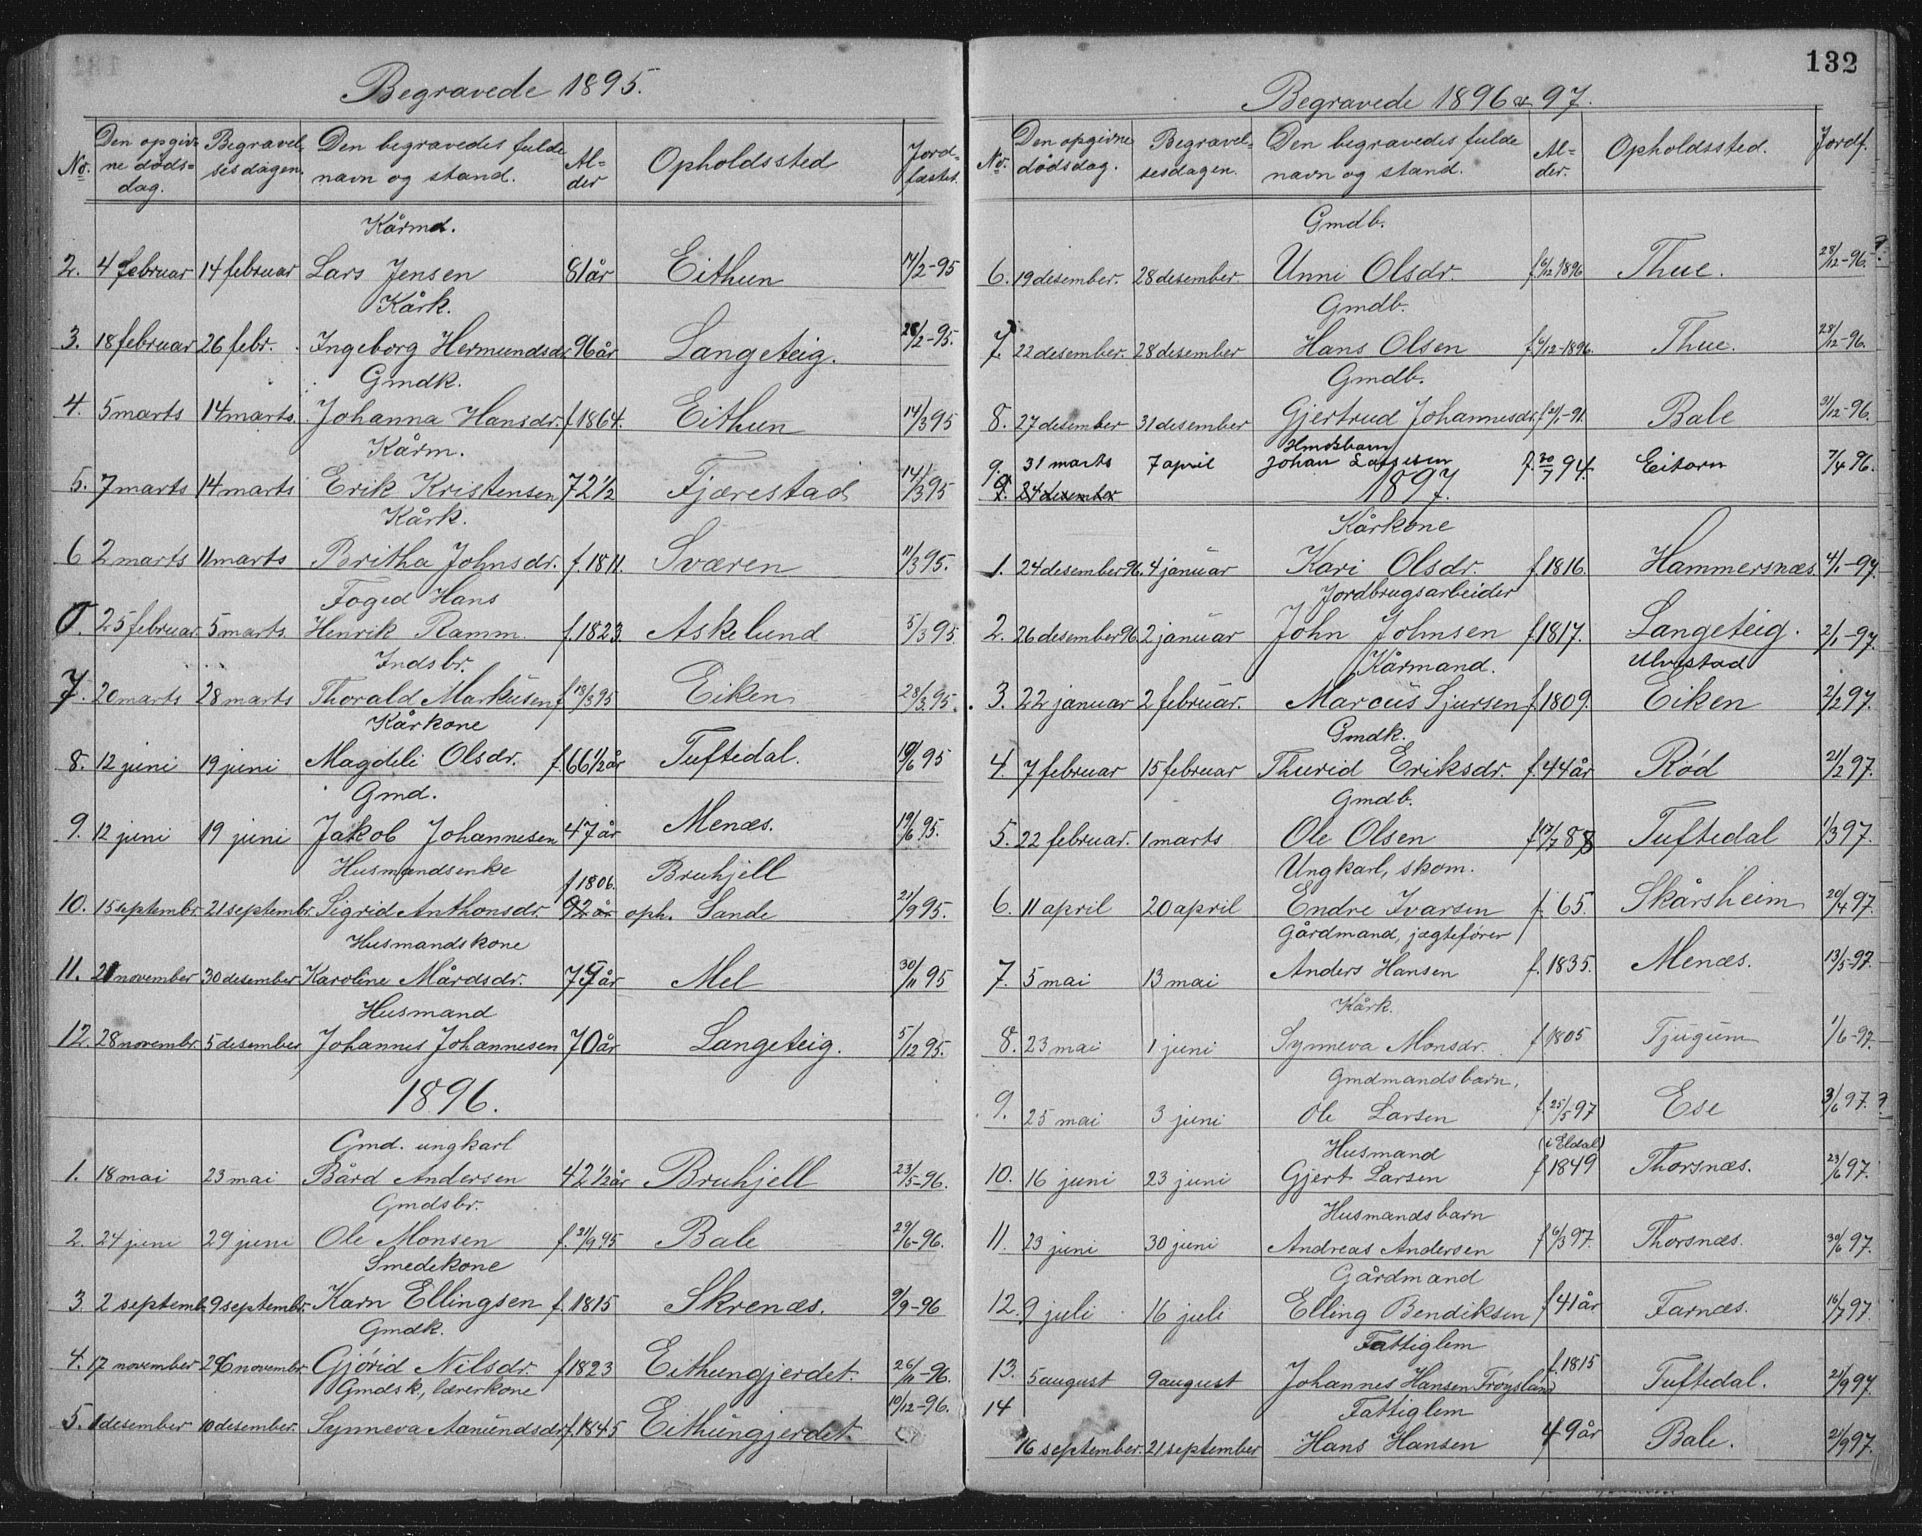 Begravede 1895.
No. Den opgivne dødsdag. Begravelsesdagen. Den begravedes fulde navn og stand. Alder Opholdssted Jordfæstet.
Kårmd.
2. 4 februar 14 februar Lars Jensen 81 år Eithun 17/2-95
Kårk.
3. 18 februar 26 febr. Ingeborg Hermundsdr. 96 år Langeteig. 28/2-95.
Gmdk.
4. 5 marts 14 marts. Johanna Hansdr. f. 1864. Eithun 14/3 95
Kårm.
5. 7 marts 14 marts Erik Kristensen 72 1/2 Fjærestad 14/3 95
Kårk.
6 2 marts 11 marts Britha Johnsdr. f. 1811. Sværen 11/3 95.
Foged Hans
0. 25 februar 5 marts. Henrik Ramm. f. 1823 Askelund 5/3 95
Indsbr.
7. 20 marts 28 marts Thorald Markusen f 13/3 95 Eiken 28/3 95.
Kårkone
8. 12 juni 19 juni Magdeli Olsdr. f. 66 1/2 år Tuftedal. 19/6 95
Gmd.
9. 12 juni 19 juni Jakob Johannesen 47 år Menæs. 19/6 95.
Husmandsenke f 1806. Bruhjell
10. 15 septembr. 21 septembr. Sigrid Anthonsdr. 92 år oph. Sande 21/9 95.
Husmandskone
11. 21 november 30 desember Karoline Mårdsdr. 79 år Mel 30/11 95
Husmand
12. 28 novembr. 5 desember Johannes Johannesen 70 år Langeteig. 5/12 95.
1896.
Gmd. ungkarl
1. 18 mai 23 mai Bård Andersen 42 1/2 år Bruhjell 23/5-96.
Gmdsbr.
2. 24 juni 29 juni Ole Monsen f. 21/9 95 Bale 29/6-96.
Smedekone
3. 2 septemb. 9 septembr. Karn Ellingsen f. 1815 Skrenæs. 9/9-96
Gmdk.
4. 17 november 26 novembr. Gjørid Nilsdr. f 1823 Eithungjerdet. 26/11-96.
Gmdsk, lærerkone 10/12-96.
5. 1 desember 10 desember. Synneva Aamundsdr. f. 1845 Eithungjerdet
132
Begravede 1896 & 97.
No. Den opgivne dødsdag. Begravelsesdagen. Den begravedes fulde navn og stand. Alder. Opholdssted. Jordf.
Gmdb.
6. 19 desember. 28 desember. Unni Olsdr. f 6/12 1896 Thue. 28/12-96. ?
Gmdb.
7. 22 desember. 28 desember Hans Olsen f 6/12-1896. Thue. 28/12-96.
Gmdb.
8. 27 desember 31 desember Gjertrud Johannesdr. f 2/1-91. Bale 31/12-96.
Hmdsbarn
9. 31 marts 7 april Johan Larsen f. 20/7 94. Eitorn 7/4 96.
9. 24 desember 1897.
Kårkone
1. 24 desember 96. 4 januar Kari Olsdr. f. 1816. Hammersnæs. 4/1-97.
Jordbrugsarbeider
2. 26 desember 96. 2 januar John Johnsen f 1817. Langeteig. 2/1-97
Kårmand. Ulvestad
3. 22 januar 2 februar. Marcus Sjursen f. 1809. Eiken 2/2 97.
Gmdk.
4. 7 februar 15 februar Thurid Eriksdr. f. 44 år Rød 21/2 97.
Gmdb.
5. 22 februar. 1 marts Ole Olsen f 17/7 88 Tuftedal 1/3 97.
Ungkarl, skom.
6. 11 april 20 april Endre Ivarsen f. 65. Skårsheim 20/4 97.
Gårdmand, jægtefører
7. 5 mai 13 mai Anders Hansen f. 1835. Menæs. 13/5-97.
Kårk.
8. 23 mai 1 juni Synneva Monsdr. f 1805 Tjugum 1/6-97.
Gmdmandsbarn,
9. 25 mai 3 juni Ole Larsen f. 25/5 97 Ese 3/6 97. ?
Husmand (i Eldal)
10. 16 juni 23 juni Gjert Larsen f 1849 Thorsnæs. 23/6 97.
Husmandsbarn
11. 23 juni 30 juni Andreas Andersen f 6/3 97. Thorsnæs. 30/6 97.
Gårdmand
12. 9 juli 16 juli Elling Bendiksen f 41 år Farnæs. 16/7 97.
Fattiglem
13. 5 august 9 august Johannes Hansen Frøysland f. 1815 Tuftedal. 21/9 97.
14 Fattiglem
16 september. 21 september Hans Hansen 49 år Bale. 21/9 97.